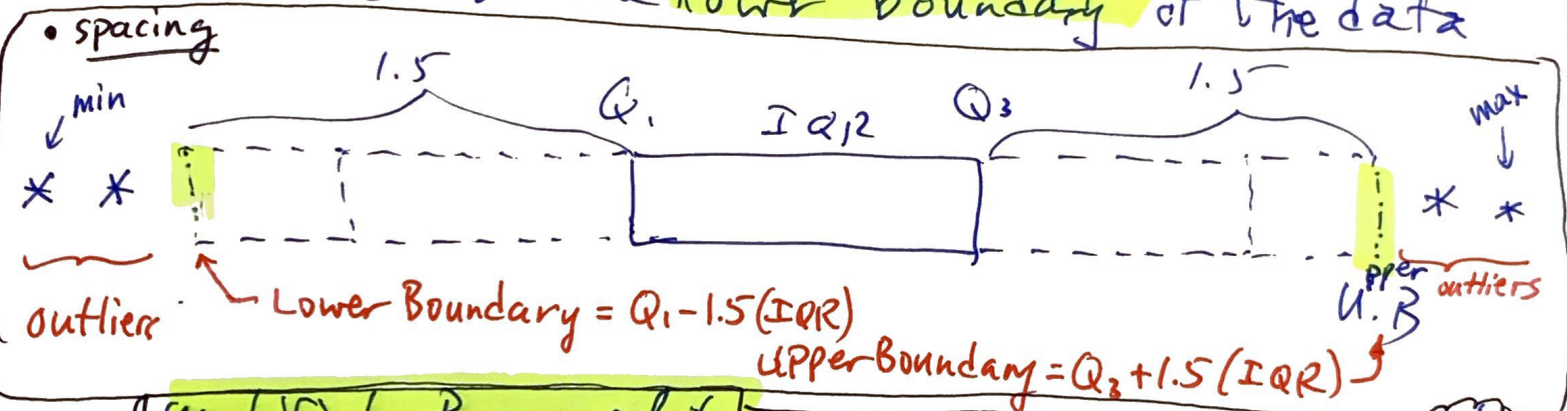 lower boundary of the data
• spacing
1.5
1.5
min
Q1
IQR
Q3
max
* *
* *
outliers
Lower Boundary = Q1 - 1.5 (IQR)
Upper
U.B
outliers
Upper Boundary = Q3 + 1.5 (IQR)